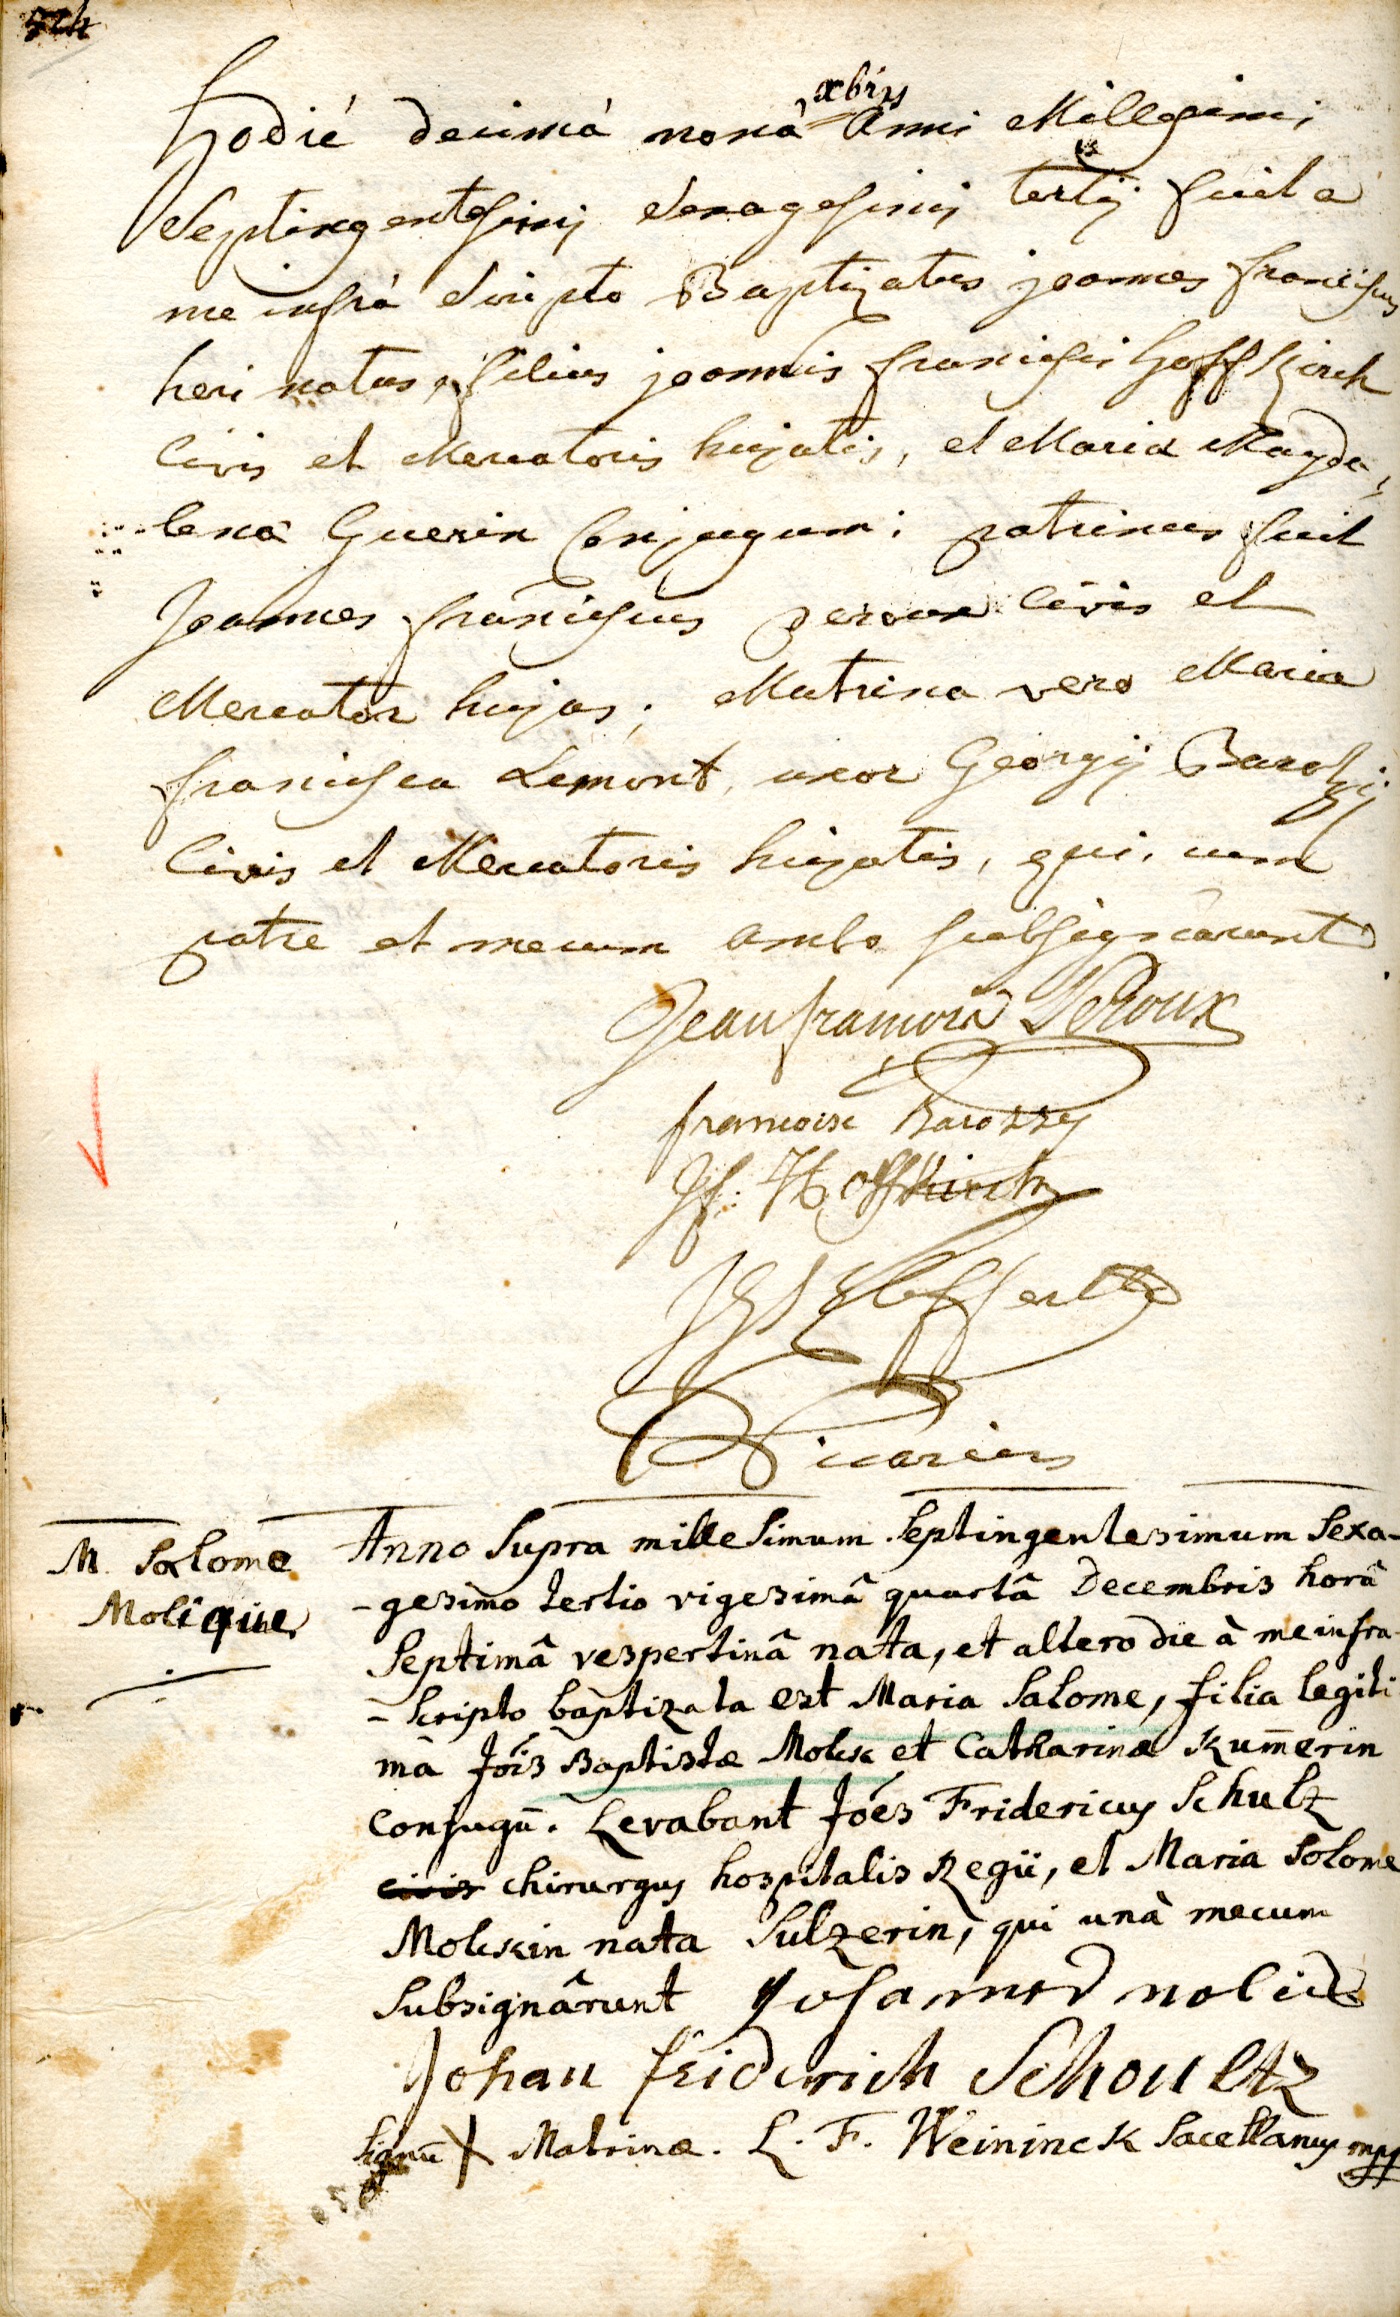 524
Hodié decimâ nonâ xbris Anni Millesimi
Septingentesimi Sexagesimi tertij fuit a
me infrà Scripto Baptizatus joannes franciscus
heri natus, filius joannis francisci Hoffkirch
Civis et Mercatoris hujatis, et Maria Magda,
lena Guerin Conjugum; patrinus fuit
Joannes franciscus Civis et
Mercator hujas; Matrina vero Maria
francisca Lemont, uxor Georgij Barozzi
Civis et Mercatoris hujatis, qui, cum
patre et mecum ambo subsignarunt
Jean francois LeRoux
francoise Barozzy
Jf: Hoffkirch
Vicarius
M. Salome
Molique
Anno Supra millesimum Septingentesimum Sexa-
-gesimo tertio vigesimâ quartâ Decembris horâ
Septimâ vespertinâ nata, et altero die à me infra-
-scripto baptizata est Maria Salome, filia legiti
ma Jöis Baptistæ Molick et Catharinæ Kum̄erin
Conjugū. Levabant Jöes Fridericus Schulz
civis chirurgus hospitalis Regii, et Maria Solome
Molickin nata Sulzerin, qui unà mecum
Subsignârunt Johannes molick
Johan friderich Schoultz
Signū X Matrinæ. L. F. Weininck Sacellanus mpp